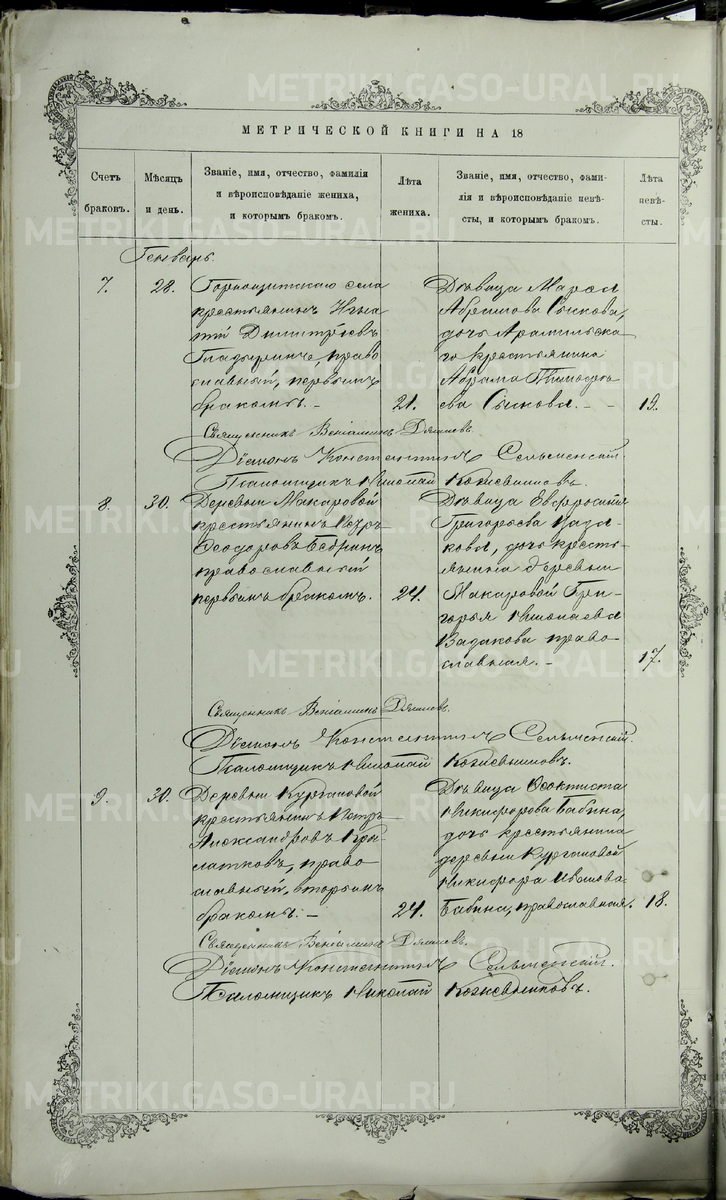 МЕТРИЧЕСКОЙ КНИГИ НА 18
Счетъ браковъ.
Мѣсяцъ и день.
Званіе, имя, отчество, фамилія
и вѣроисповѣданіе жениха,
и которымъ бракомъ.
Лѣта жениха.
Званіе, имя, отчество, фами-
лія и вѣроисповѣданіе невѣ-
сты, и которымъ бракомъ.
Лѣта невѣ-
сты.
Генварь.
7. 28.
Горнощитскаго села
крестьянинъ Игна
тій Димитріевъ
православный, первымъ
бракомъ.
21.
Дѣвица
Абрамова
дочь Арамильска
го крестьянина
Абрама
19.
Священникъ Веніаминъ
Діаконъ Константинъ
Псаломщикъ Николай Кожевниковъ.
8. 30.
Деревни Макаровой
крестьянинъ Петръ
Ѳеодоровъ
православный
первымъ бракомъ.
24.
Дѣвица Евфросинія
Григорьева Каза-
кова, дочь кресть-
янина деревни
Макаровой Гри-
горья Николаева
Казакова право-
славная.
17.
Священникъ Веніаминъ
Діаконъ Константинъ
Псаломщикъ Николай Кожевниковъ.
9. 30.
Деревни Кургановой
крестьянинъ Петръ
Александровъ Кры-
латковъ, право
славный, вторымъ
бракомъ.
24.
Дѣвица Ѳеоктиста
Никифорова Бабина,
дочь крестьянина
деревни Кургановой
Никифора Иванова
Бабина, православная.
18.
Священникъ Веніаминъ
Діаконъ Константинъ
Псаломщикъ Николай Кожевниковъ.
METRIKI.GASO-URAL.RU